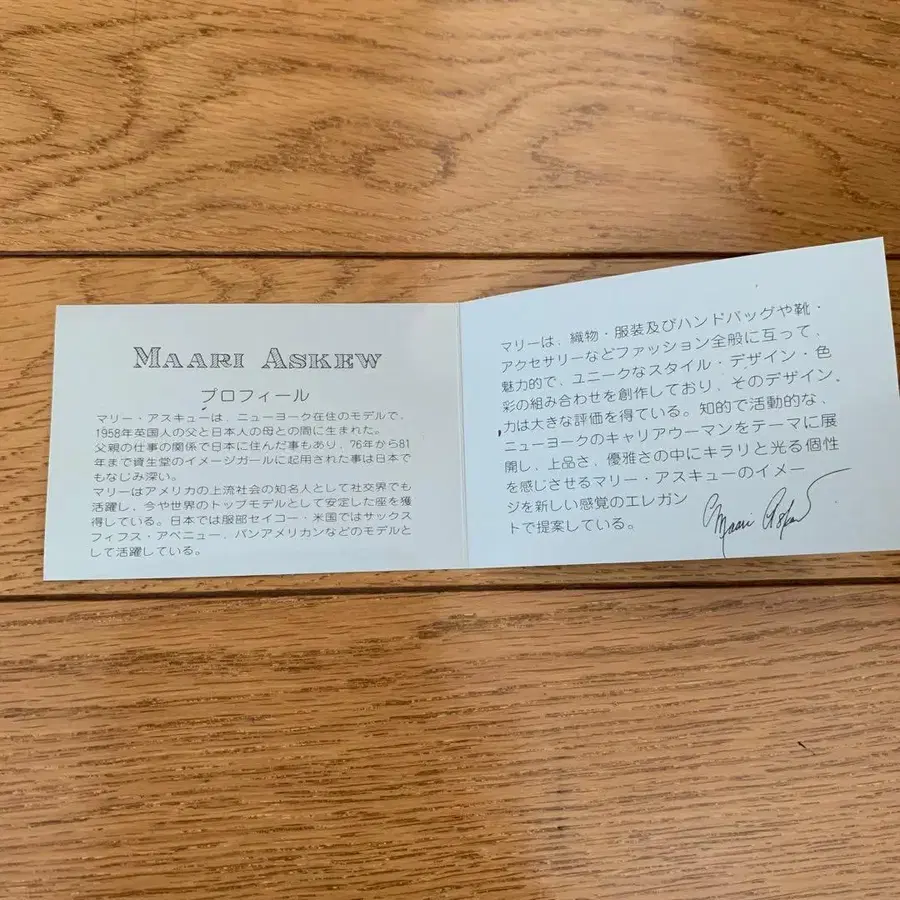 MAARI ASKEW
プロフィール
マリー・アスキューは、ニューヨーク在住のモデルで、
1958年英国人の父と日本人の母との間に生まれた。
父親の仕事の関係で日本に住んだ事もあり、'76年から81
年まで資生堂のイメージガールに起用された事は日本で
もなじみ深い。
マリーはアメリカの上流社会の知名人として社交界でも
活躍し、今や世界のトップモデルとして安定した座を獲
得している。日本では服部セイコー、米国ではサックス
フィフス・アベニュー、パンアメリカンなどのモデルと
して活躍している。
マリーは、織物・服装及びハンドバッグや靴・
アクセサリーなどファッション全般に亙って、
魅力的で、ユニークなスタイル・デザイン・色
彩の組み合わせを創作しており、そのデザイン
力は大きな評価を得ている。知的で活動的な、
ニューヨークのキャリアウーマンをテーマに展
開し、上品さ、優雅さの中にキラリと光る個性
を感じさせるマリー・アスキューのイメー
ジを新しい感覚のエレガン
トで提案している。
Maari Askew